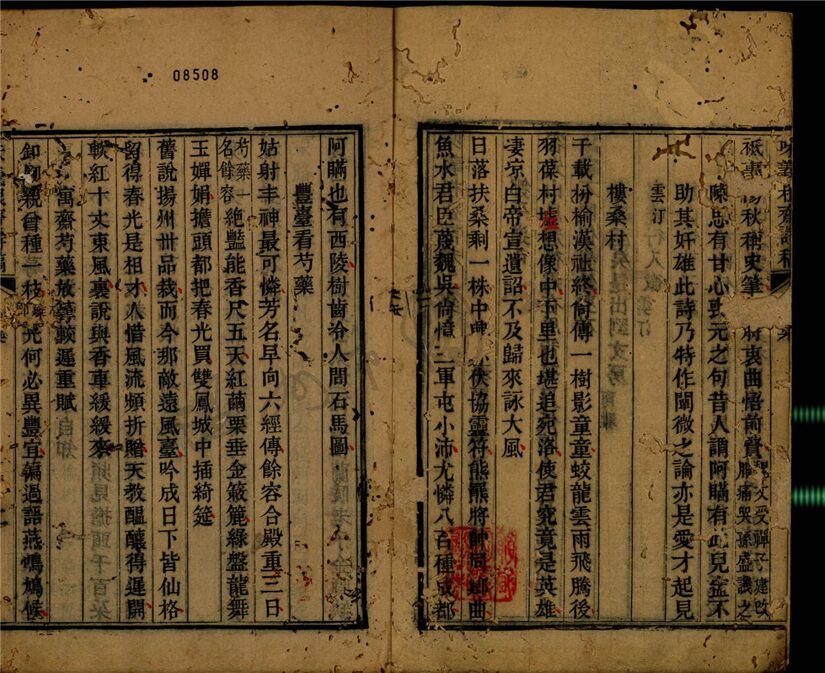 秋稱史筆
衷曲悟前賢
受禪子建改
服痛哭孫盛議之
思有甘心喪元之句昔人謂阿瞞有此兒益不
助其奸雄此詩乃特作闡微之論亦是愛才起見
樓桑村
千載枌榆漢社終尙傳一樹影童童蛟龍雲雨飛騰後
羽葆村墟想像中下里也堪追宛洛使君究竟是英雄
凄凉白帝宣遺詔不及歸來詠大風
日落扶桑剩一株中典
伏協靈符熊羆將帥同鄉曲
魚水君臣蔑魏吳尙憶三軍屯小沛尤憐八百種成都
08508
阿瞞也有西陵樹齒冷人間石馬圖
豐臺看芍藥
姑射丰神最可憐芳名早向六經傳餘容合殿重三日
芍藥一
名餘容
絕艷能香尺五天紅繭栗垂金簸簏綠盤龍舞
玉嬋娟擔頭都把春光買雙鳳城中插綺筵
舊說揚州卅品栽而今那敵遠風臺吟成日下皆仙格
留得春光是相才人惜風流頻折贈天教醞釀得遲開
軟紅十丈東風裏說與香車緩緩來
寓齋芍藥放蕚較遲重賦
卸
親曾種一枝
光何必異豐宜偏過語燕鳴鳩候